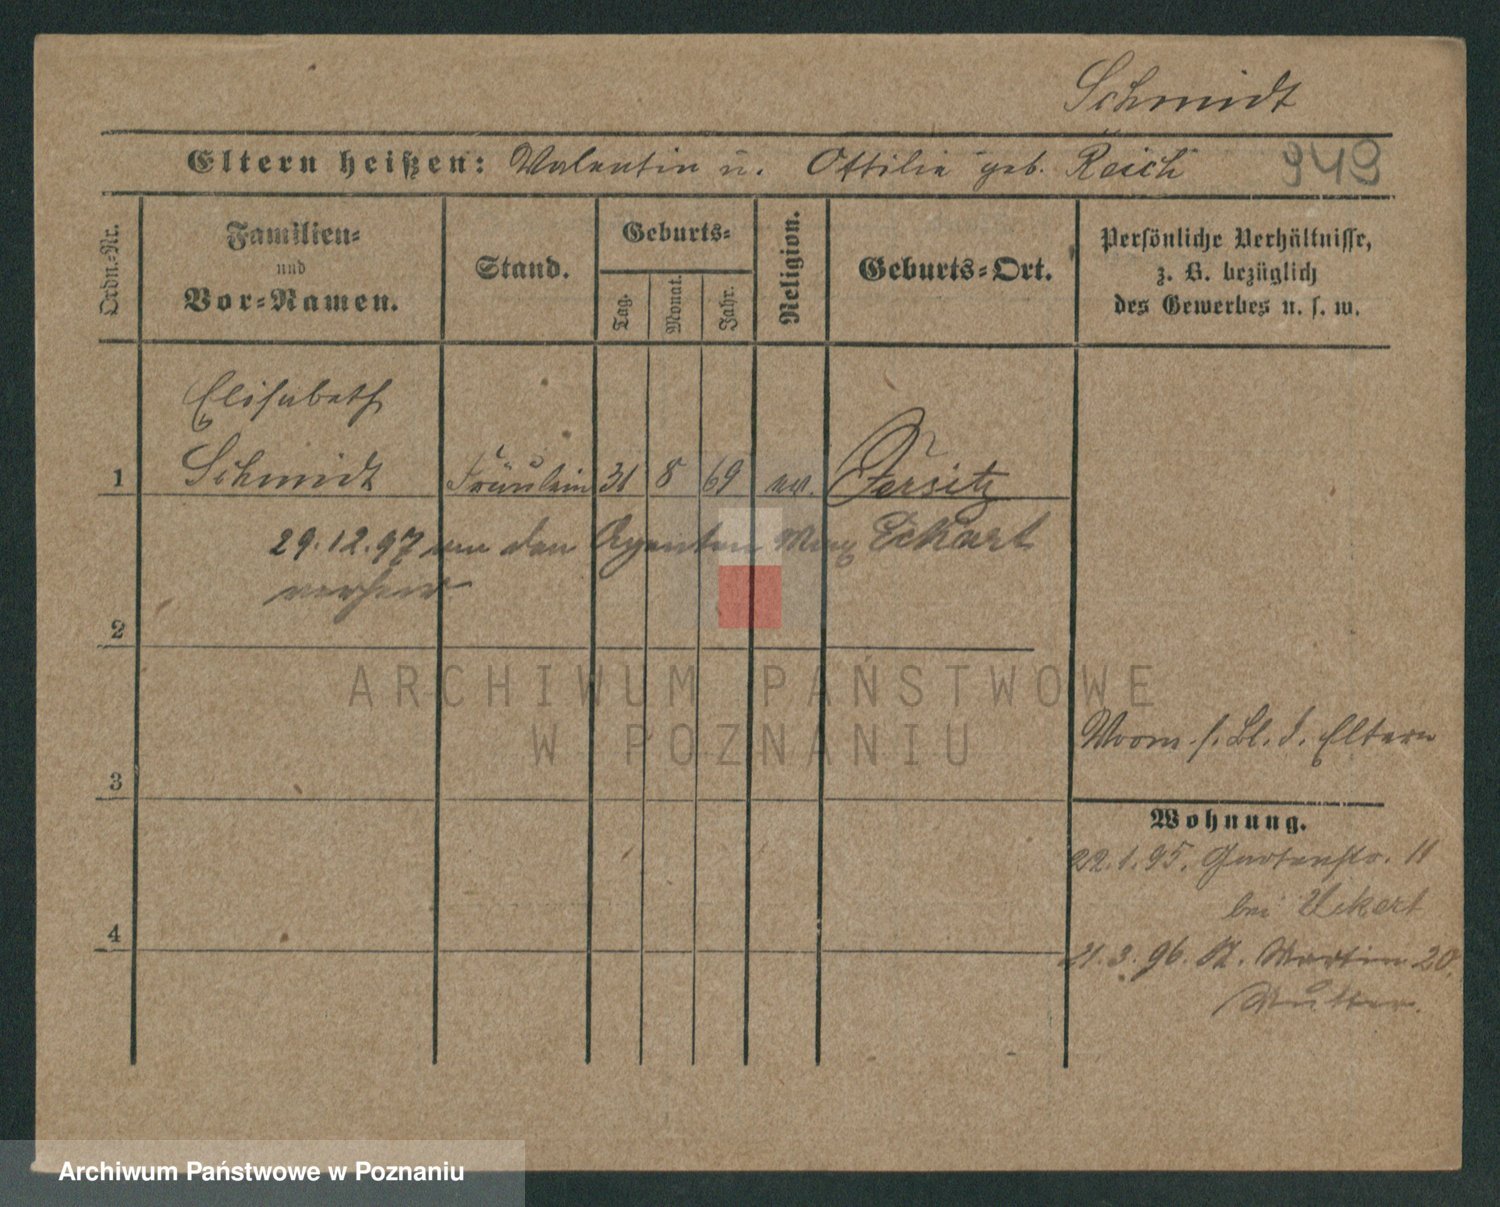 Schmidt
Eltern heißen: Valentin u. Ottilie geb. Reich
949
Ordn.-Nr.
Familien-
und
Vor-Namen.
Stand.
Geburts-
Tag.
Monat.
Jahr.
Religion.
Geburts-Ort.
Persönliche Verhältnisse,
z. B. bezüglich
des Gewerbes u. s. w.
Elisabeth
1 Schmidt Fräulein 31 8 69 ev. Jersitz
29.12.97 an den Agenten Max Eckart
verheir.
2
ARCHIWUM PAŃSTWOWE
W POZNANIU
Vorm. s. Bl. d. Eltern
3
Wohnung.
22.1.95. Gartenstr. 11
bei Eckert
4
21.3.96. St. Martin 20.
Mutter.
Archiwum Państwowe w Poznaniu